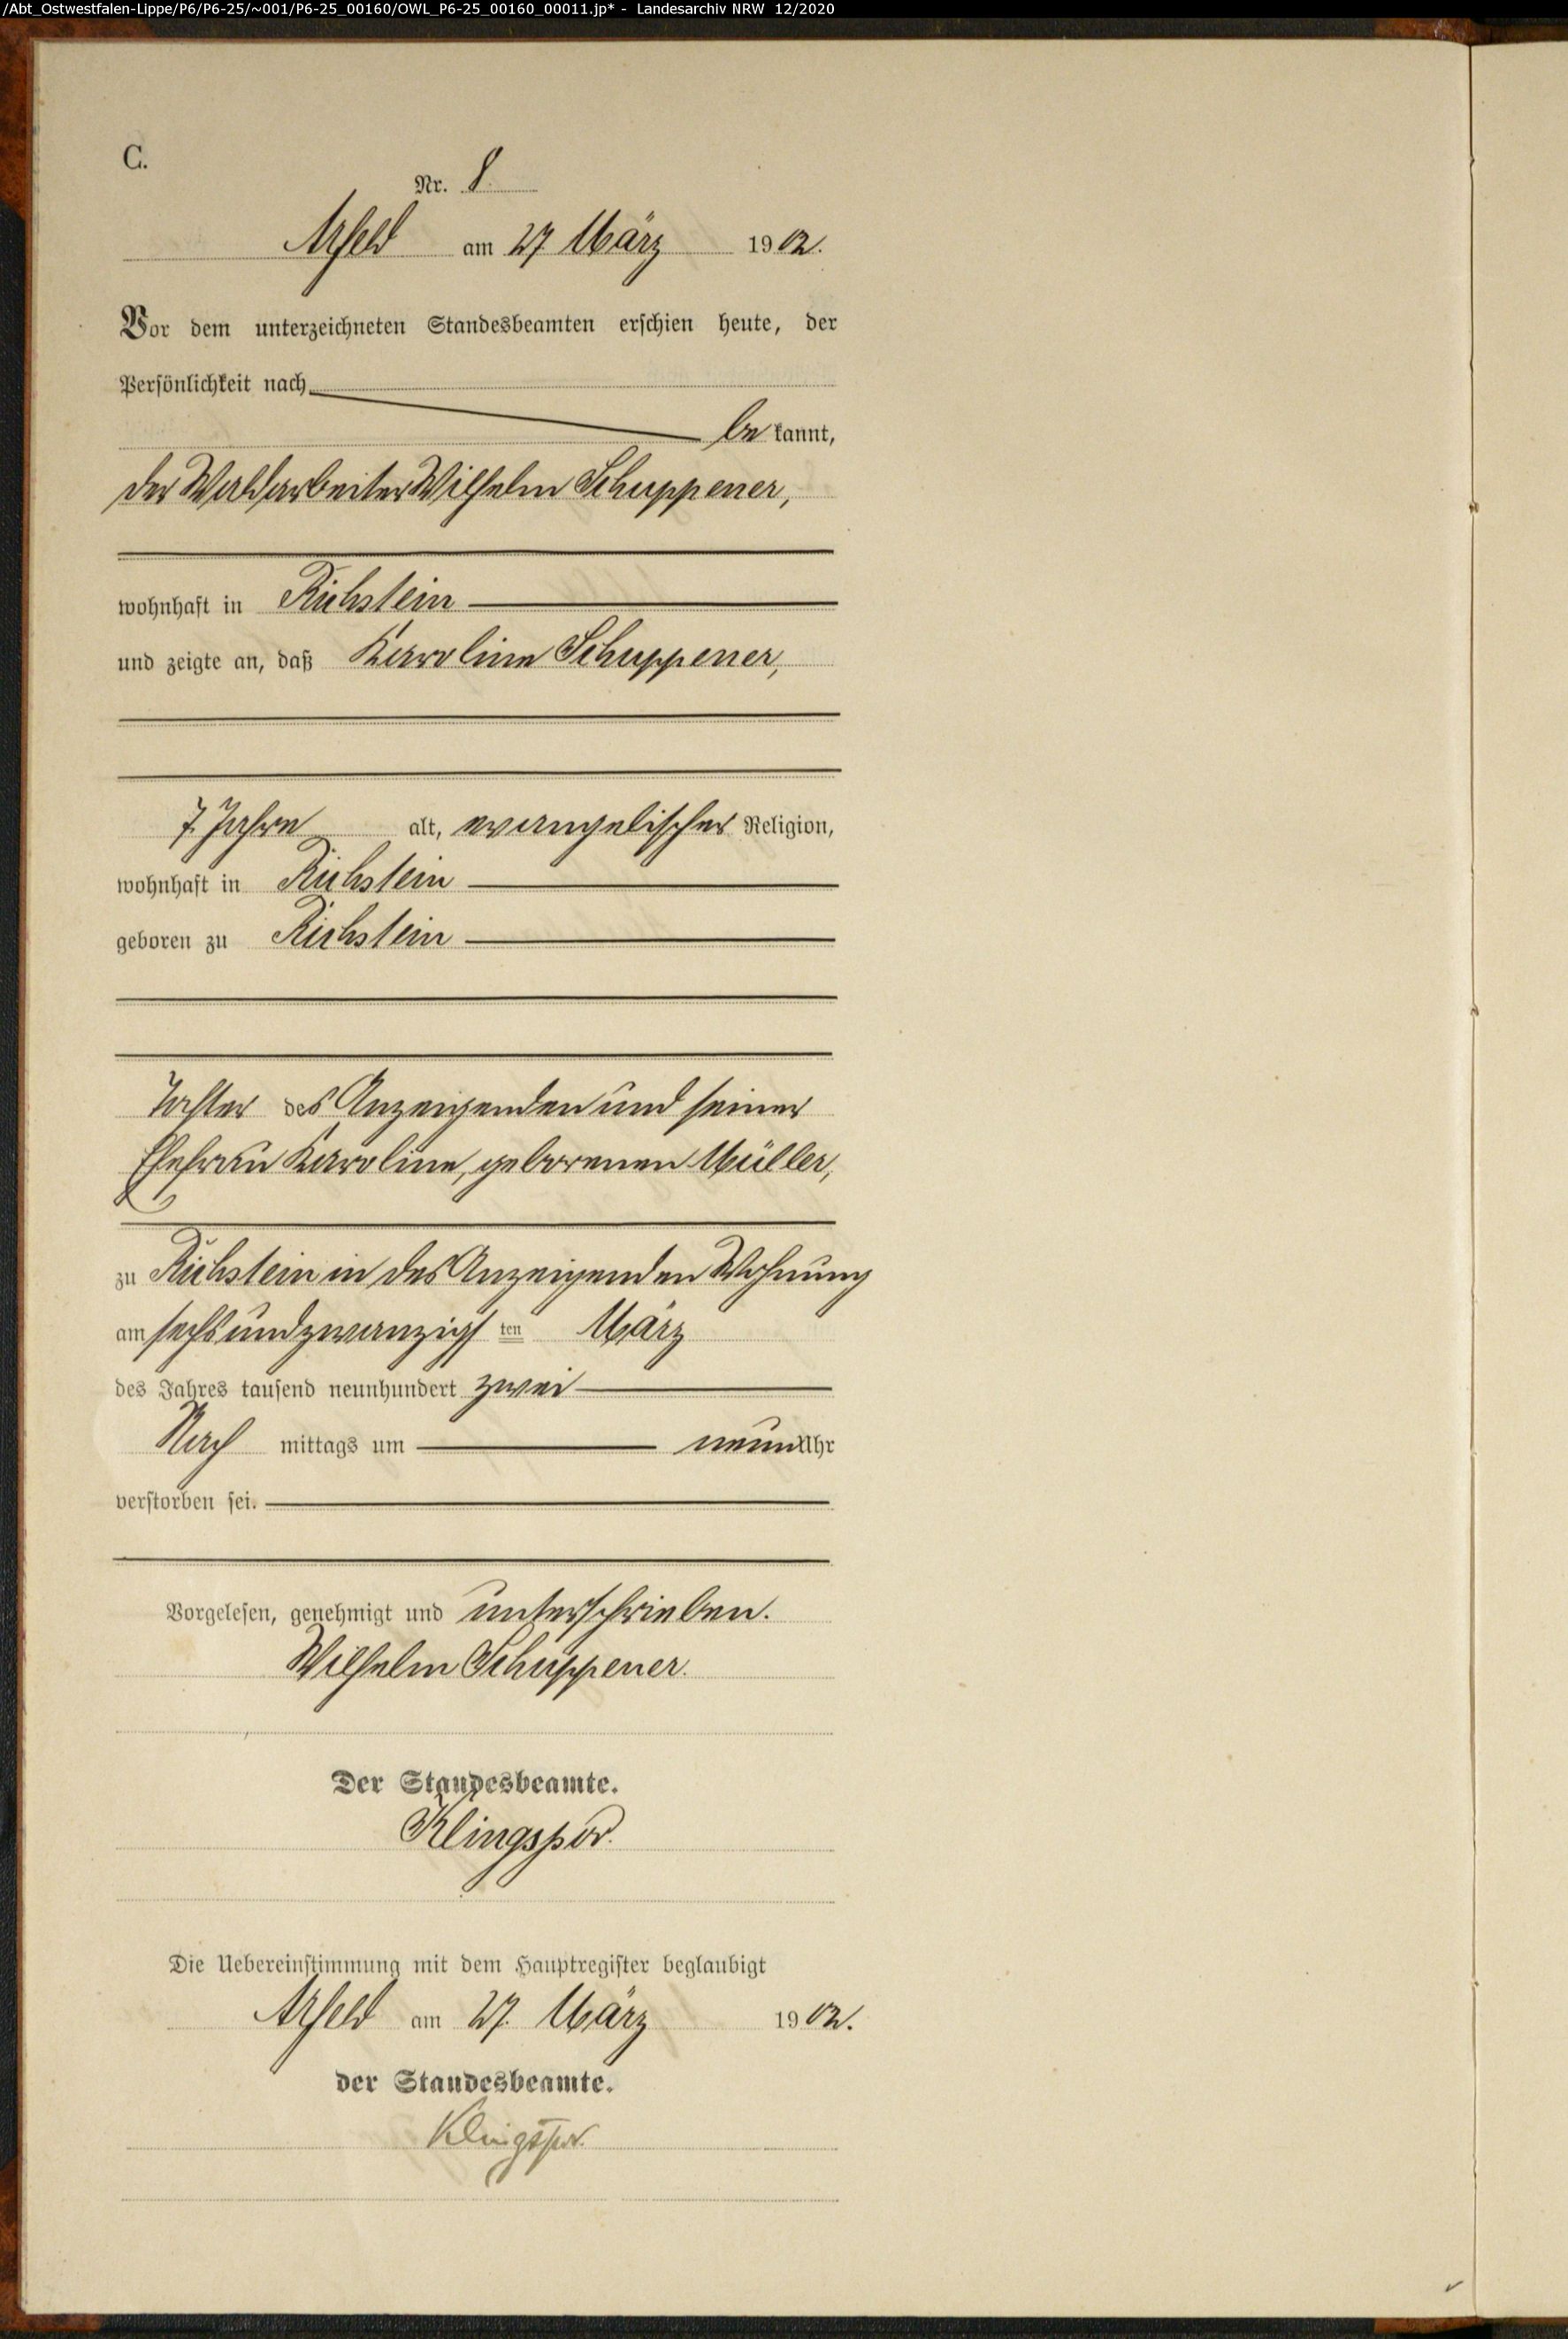 /Abt_Ostwestfalen-Lippe/P6/P6-25/~001/P6-25_00160/OWL_P6-25_00160_00011.jp* - Landesarchiv NRW 12/2020
C.
Nr. 8.
Arfeld am 27. März 1902.
Vor dem unterzeichneten Standesbeamten erschien heute, der
Persönlichkeit nach
bekannt,
der Waldarbeiter Wilhelm Schuppener,
wohnhaft in Richstein
und zeigte an, daß Karoline Schuppener,
7 Jahre alt, evangelischer Religion,
wohnhaft in Richstein
geboren zu Richstein
Tochter des Anzeigenden und seiner
Ehefrau Karoline, geborenen Müller,
zu Richstein in des Anzeigenden Wohnung
am sechsundzwanzigsten März
des Jahres tausend neunhundert zwei
Nachmittags um neun Uhr
verstorben sei.
Vorgelesen, genehmigt und unterschrieben.
Wilhelm Schuppener.
Der Standesbeamte.
Klingspor.
Die Uebereinstimmung mit dem Hauptregister beglaubigt
Arfeld am 27. März 1902.
der Standesbeamte.
Klingspor.